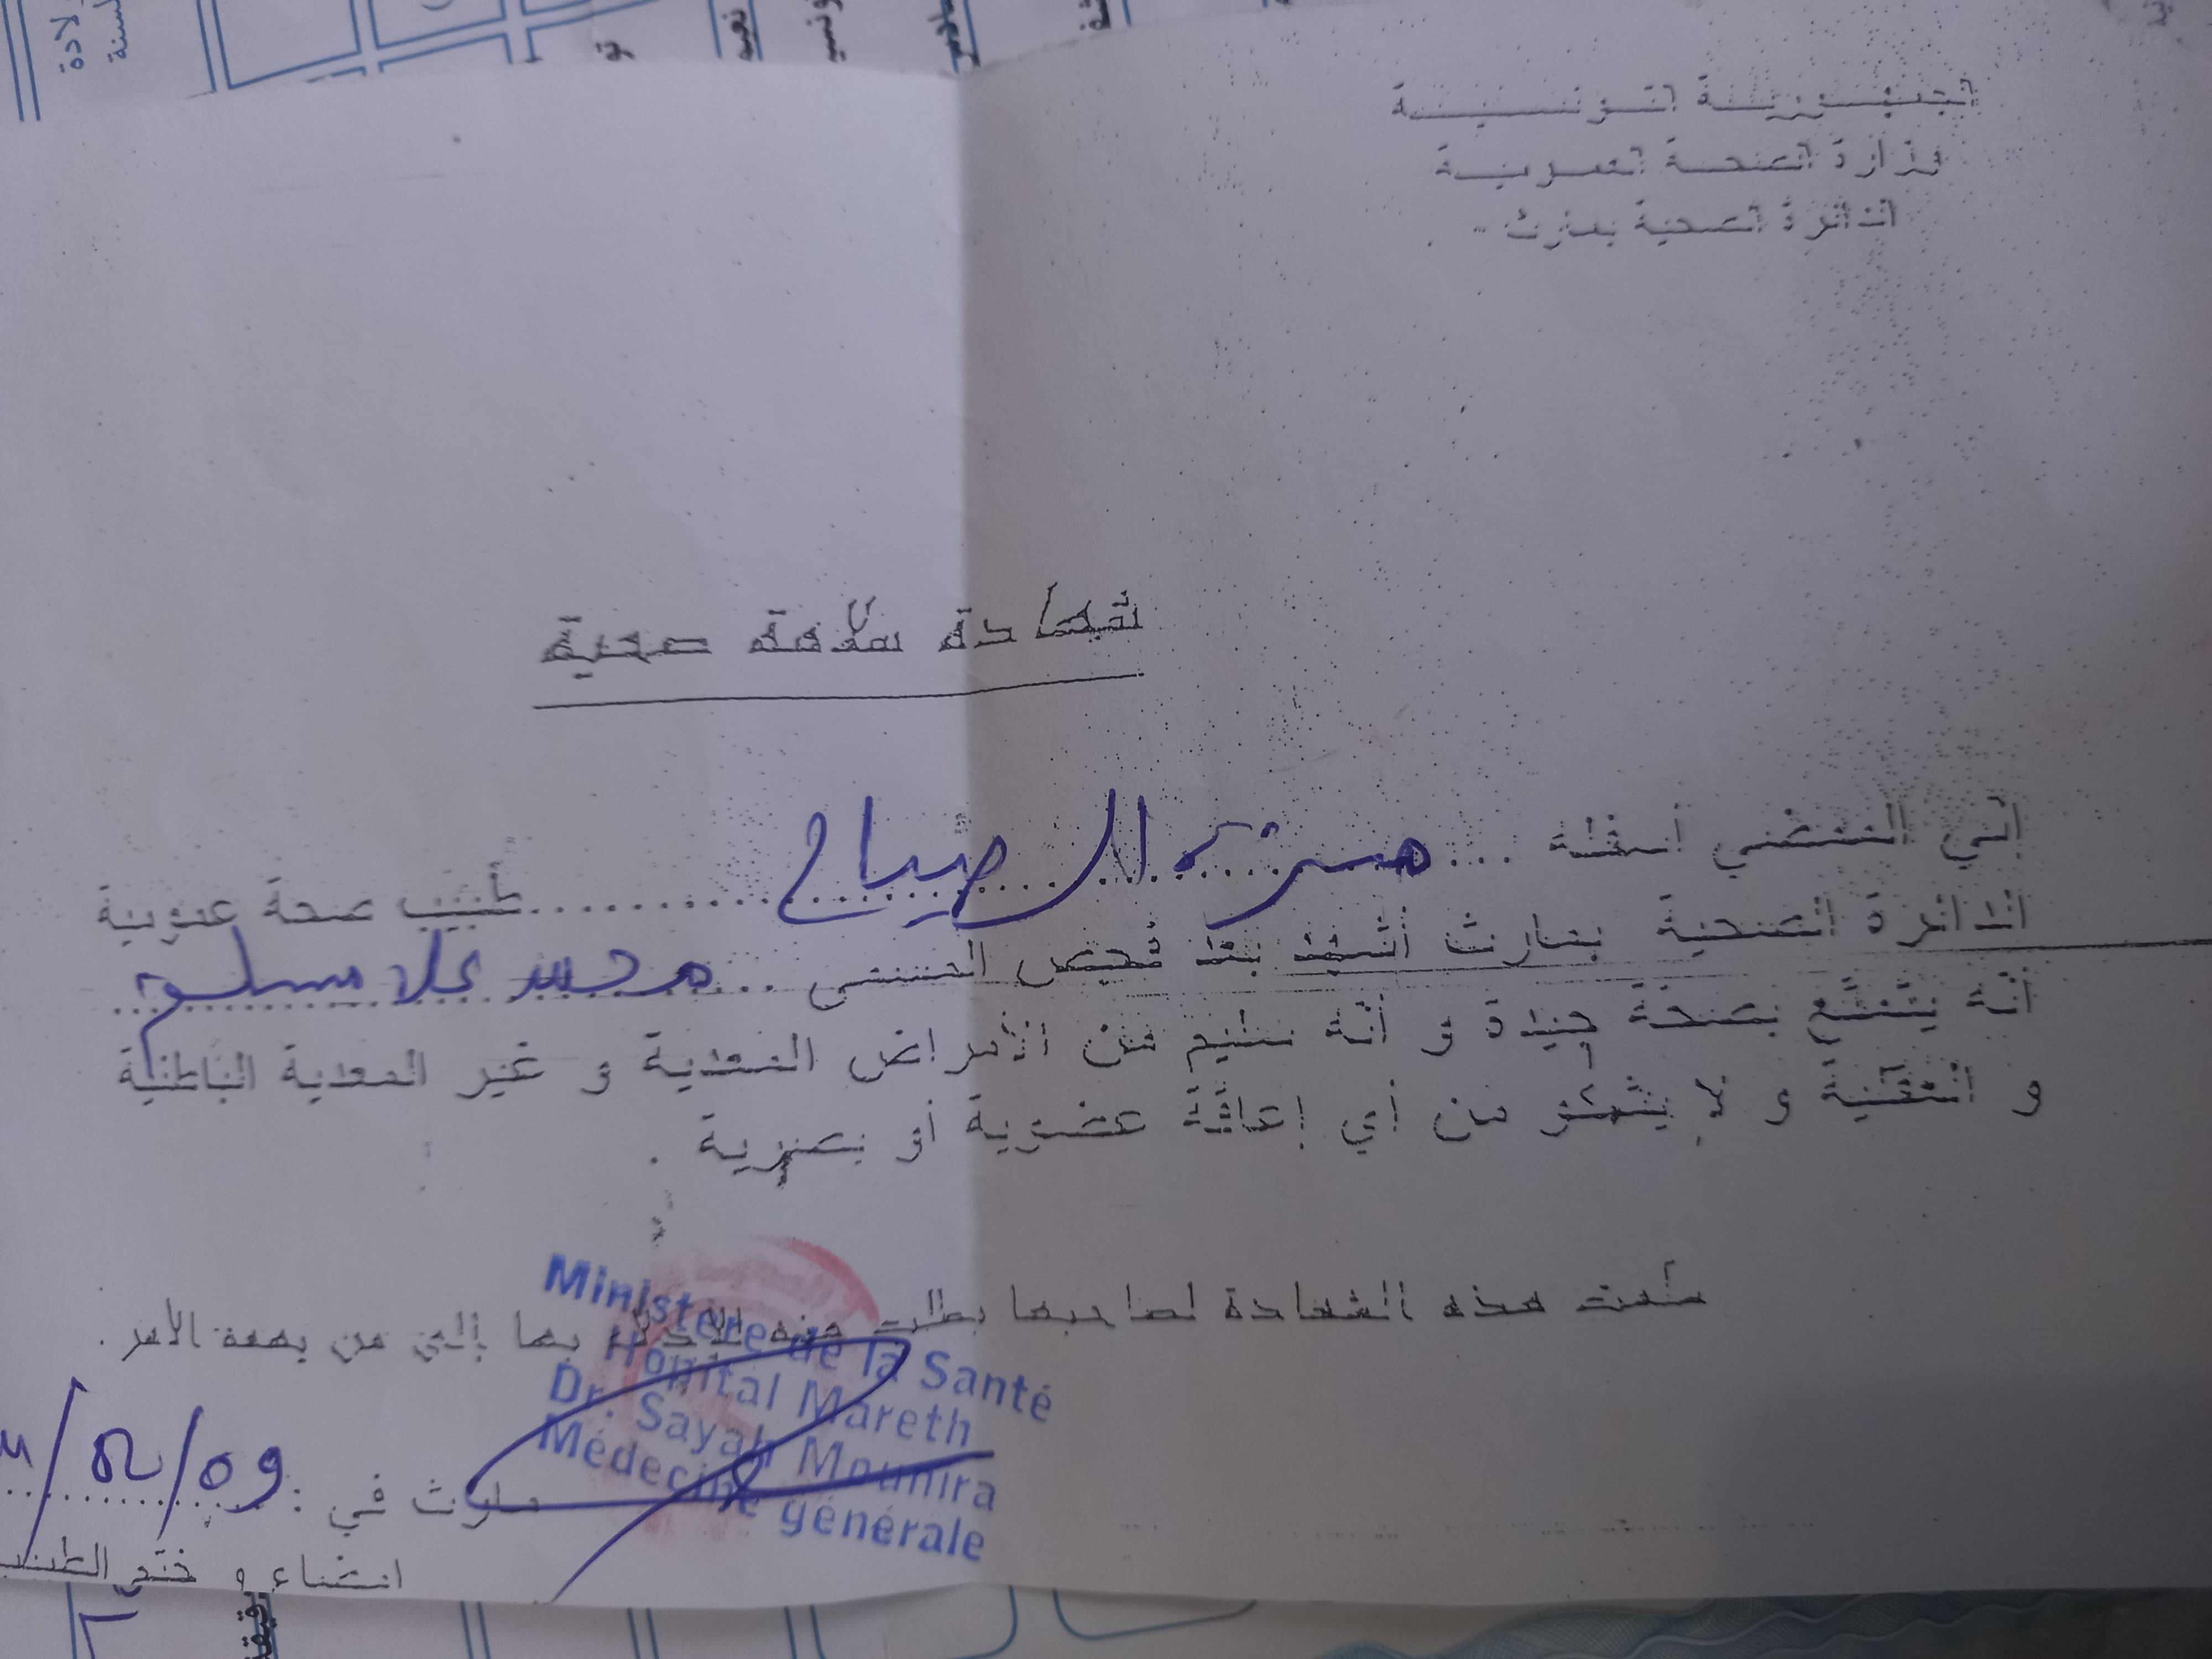 الجمهورية التونسية
وزارة الصحة العمومية
الدائرة الصحية بمارث
شهادة سلامة صحية
إني الممضي أسفله ... الصياح ... طبيب صحة عمومية
الدائرة الصحية بمارث أشهد بعد فحص المسمى ... محمد علاء مسلم
أنه يتمتع بصحة جيدة و أنه سليم من الأمراض المعدية و غير المعدية الباطنية
و العقلية و لا يشكو من أي إعاقة عضوية أو بصرية .
سلمت هذه الشهادة لصاحبها بطلب منه للإدلاء بها إلى من يهمه الأمر .
Ministère de la Santé
Hopital Mareth
Dr. Sayah Mounira
Médecine générale
مارث في :
امضاء و ختم الطبيب